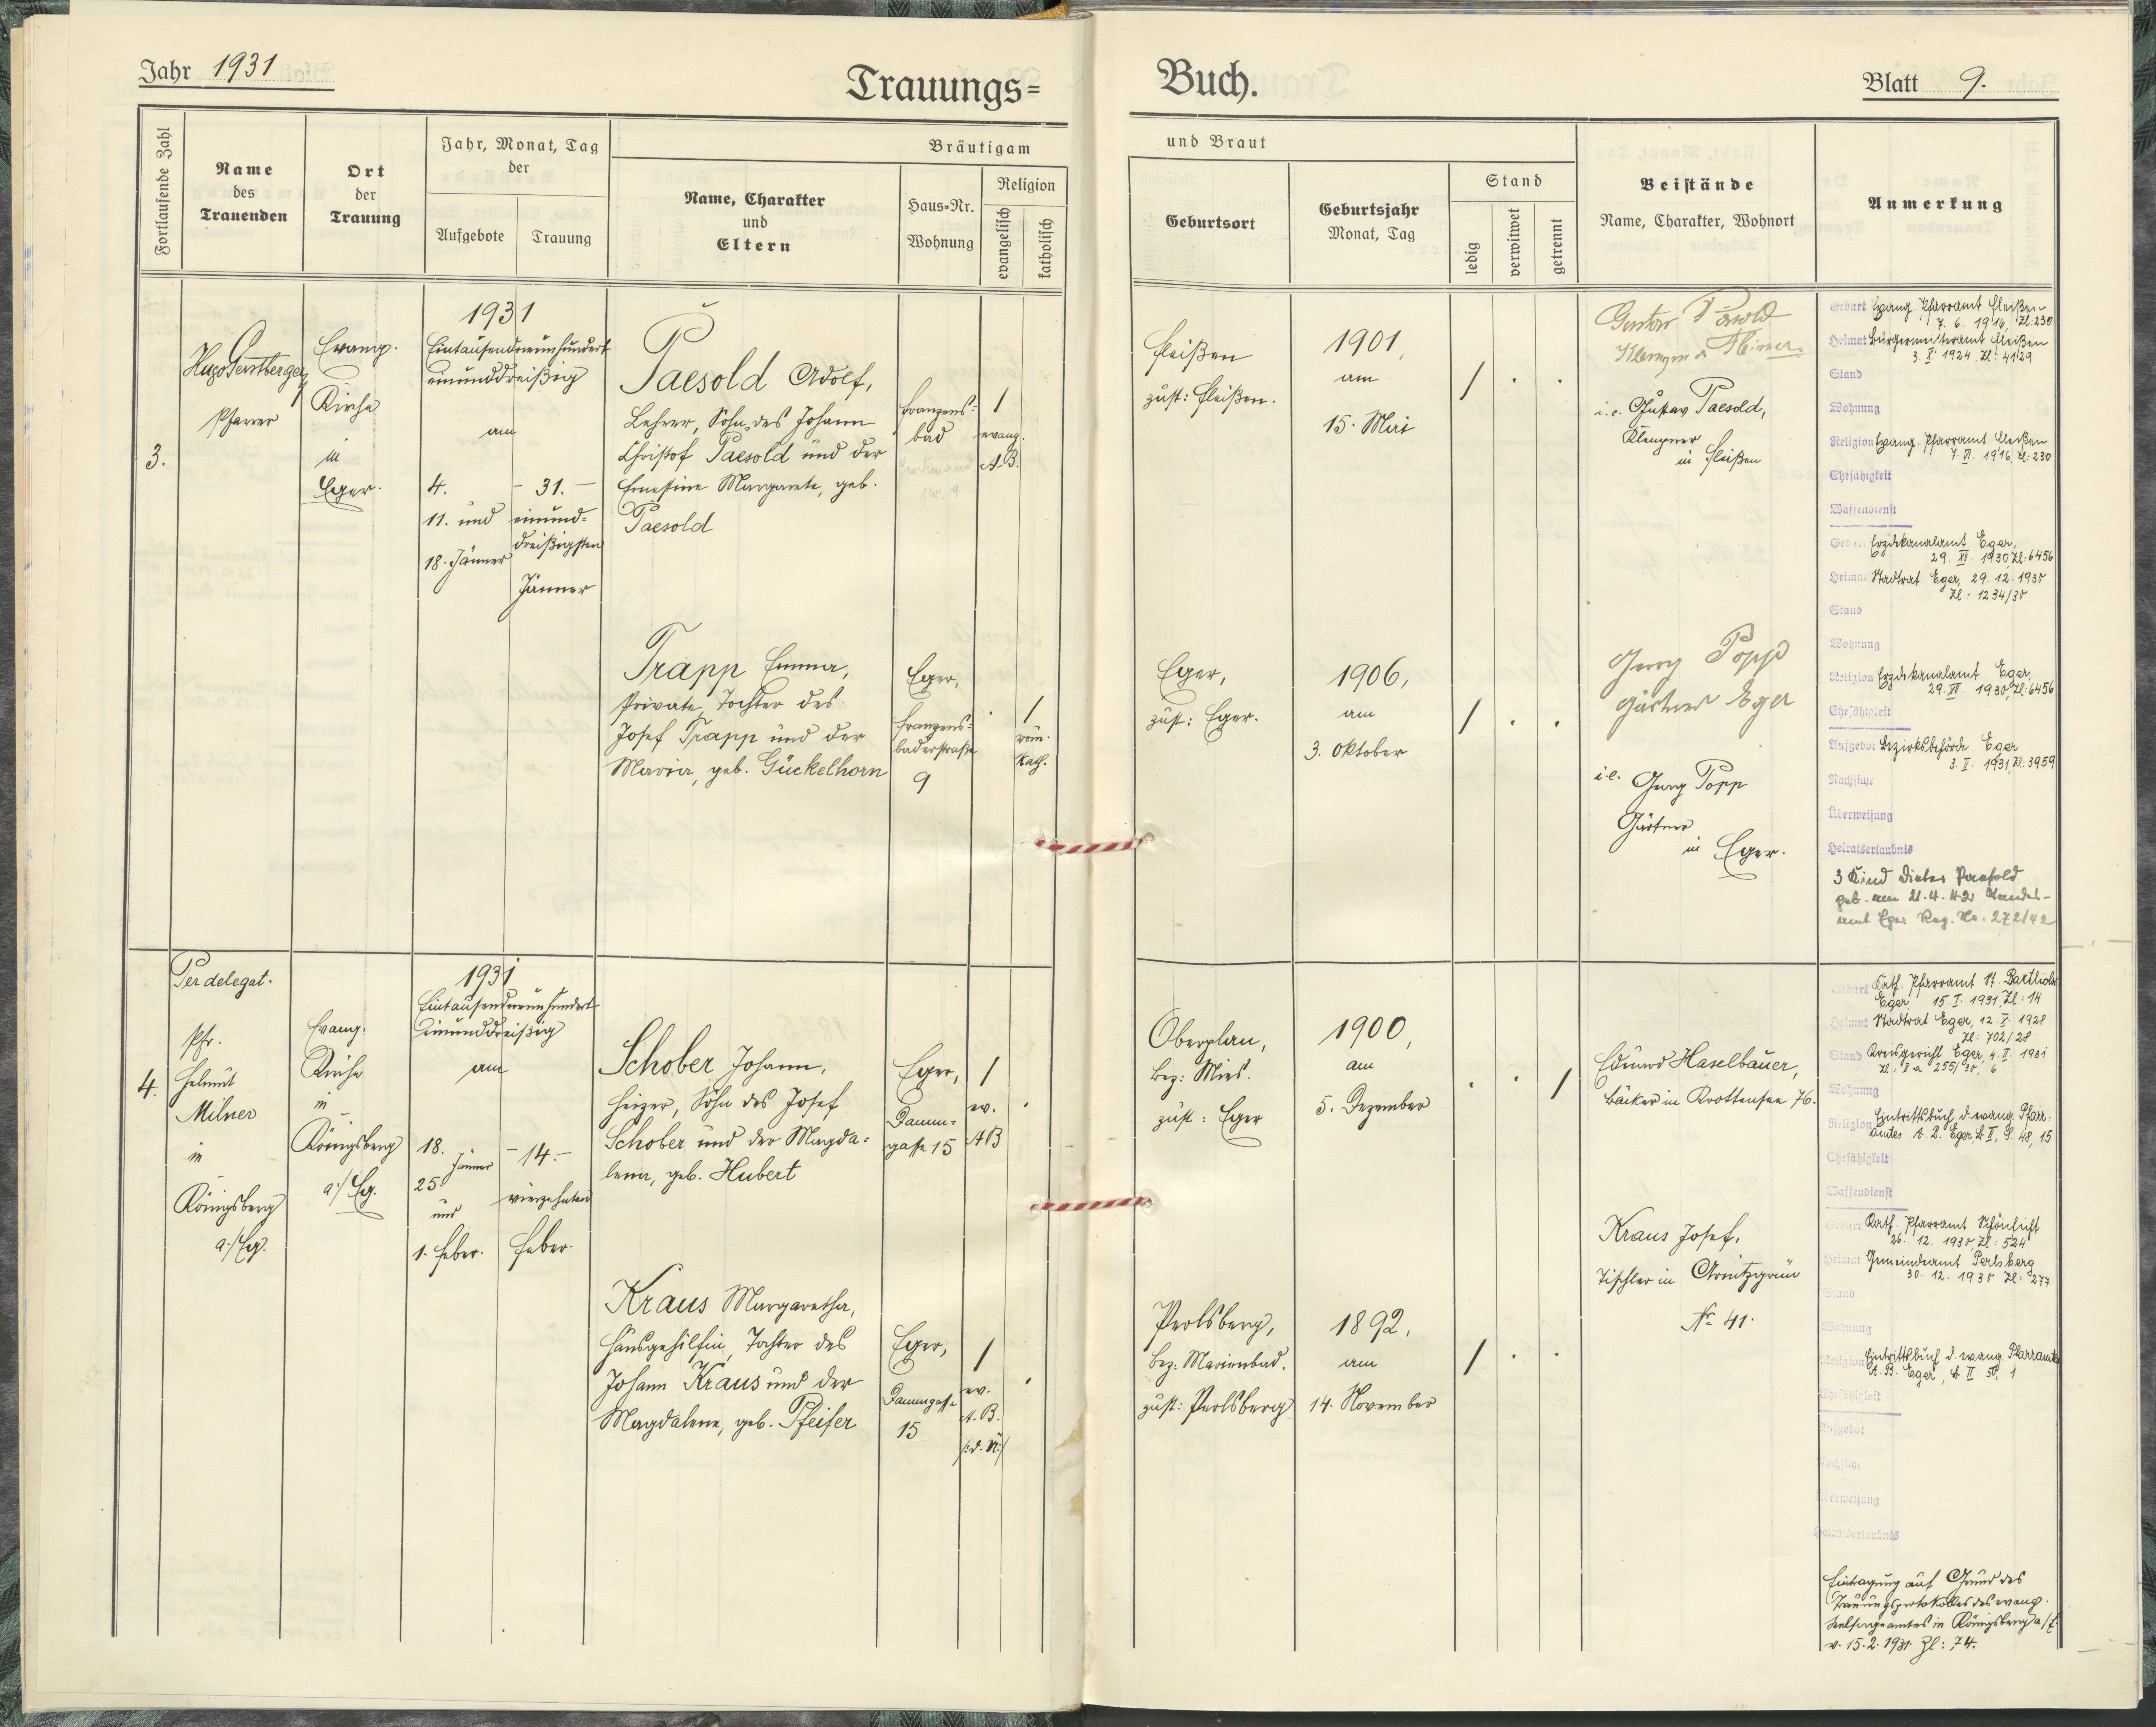 Jahr 1931
Trauungs=
Buch.
Blatt 9.
Fortlaufende Zahl
Name
des
Trauenden
Ort
der
Trauung
Jahr, Monat, Tag
der
Aufgebote
Trauung
Bräutigam
Name, Charakter
und
Eltern
Haus=Nr.
Wohnung
Religion
evangelisch
katholisch
und Braut
Geburtsort
Geburtsjahr
Monat, Tag
Stand
ledig
verwitwet
getrennt
Beistände
Name, Charakter, Wohnort
Anmerkung
3.
Hugo Gerstberger
Pfarrer
Evang.
Kirche
in
Eger.
1931
Eintausendneunhundert
einunddreißig
am
4.
11. und
18. Jänner
- 31. -
einund=
dreißigsten
Jänner
Paesold Adolf,
Lehrer, Sohn des Johann
Christof Paesold und der
Ernestine Margarete, geb.
Paesold
Franzens=
bad
evang.
A.B.
Fleißen
zust: Fleißen.
1901,
am
15. Mai
Gustav Päsold
i. e. Gustav Paesold,
Klempner
in Fleißen
Geburt Evang. Pfarramt Fleißen
7. 6. 1916, Zl: 230
Heimat Bürgermeisteramt Fleißen
3. X. 1924, Zl: 4129
Stand
Wohnung
Religion Evang. Pfarramt Fleißen
7. VI. 1916, Zl: 230
Ehefähigkeit
Waffendienst
Trapp Emma,
Private, Tochter des
Josef Trapp und der
Maria, geb. Gückelhorn
Eger,
Franzens=
baderstraße
9
röm.
kath.
Eger,
zust: Eger.
1906,
am
3. Oktober
Georg Popp
Gärtner Eger
i. e. Georg Popp
Gärtner
in Eger.
Geburt Erzdekanalamt Eger,
29. XI. 1930, Zl: 6456
Heimat Stadtrat Eger, 29. 12. 1930
Zl: 1234/30
Stand
Wohnung
Religion Erzdekanalamt Eger,
29. XI. 1930, Zl: 6456
Ehefähigkeit
Aufgebot Bezirksbehörde Eger
3. I. 1931, Zl: 3959
Nachsicht
Überweisung
Heiratserlaubnis
3 Kind Dieter Paesold
geb. am 21. 4. 42 Standes-
amt Eger Reg. Nr. 272/42
4.
Per delegat.
Pfr.
Helmut
Milner
in
Königsberg
a./Eg.
Evang.
Kirche
in
Königsberg
a./Eg.
1931
Eintausendneunhundert
einunddreißig
am
18.
Jänner
25.
und
1. Feber.
- 14. -
vierzehnten
Feber.
Schober Johann,
Heizer, Sohn des Josef
Schober und der Magda=
lena, geb. Hubert
Eger,
Damm=
gasse 15
ev.
AB
Oberplan,
Bez: Mies.
zust: Eger
1900,
am
5. Dezember
Eduard Haselbauer,
Bäcker in Krottensee 76.
Geburt Kath. Pfarramt
Eger, 15. I. 1931, Zl: 14
Heimat Stadtrat Eger, 12. X. 1928
Zl: 702/28
Stand Kreisgericht Eger, 4. II. 1931
Wohnung
Religion Eintrittsbuch d. evang. Pfarr-
amtes A. B. Eger A II, S. 48, 15
Ehefähigkeit
Waffendienst
Kraus Margaretha,
Hausgehilfin, Tochter des
Johann Kraus und der
Magdalene, geb. Pfeifer
Eger,
Dammgasse
15
ev.
A. B.
Perlsberg,
Bez: Marienbad.
zust: Perlsberg
1892,
am
14. November
Kraus Josef,
Tischler in Arnitzgrün
No 41.
Geburt Kath. Pfarramt Schönficht
26. 12. 1930, Zl: 524
Heimat Gemeindeamt Perlsberg
30. 12. 1930 Zl: 277
Stand
Wohnung
Religion Eintrittsbuch d. evang. Pfarramtes
A. B. Eger, A II 50, 1
Ehefähigkeit
Aufgebot
Nachsicht
Überweisung
Heiratserlaubnis
Eintragung auf Grund des
Trauungsprotokolles des evang.
Seelsorgeamtes in Königsberg a/E.
v. 15. 2. 1931. Zl: 74.